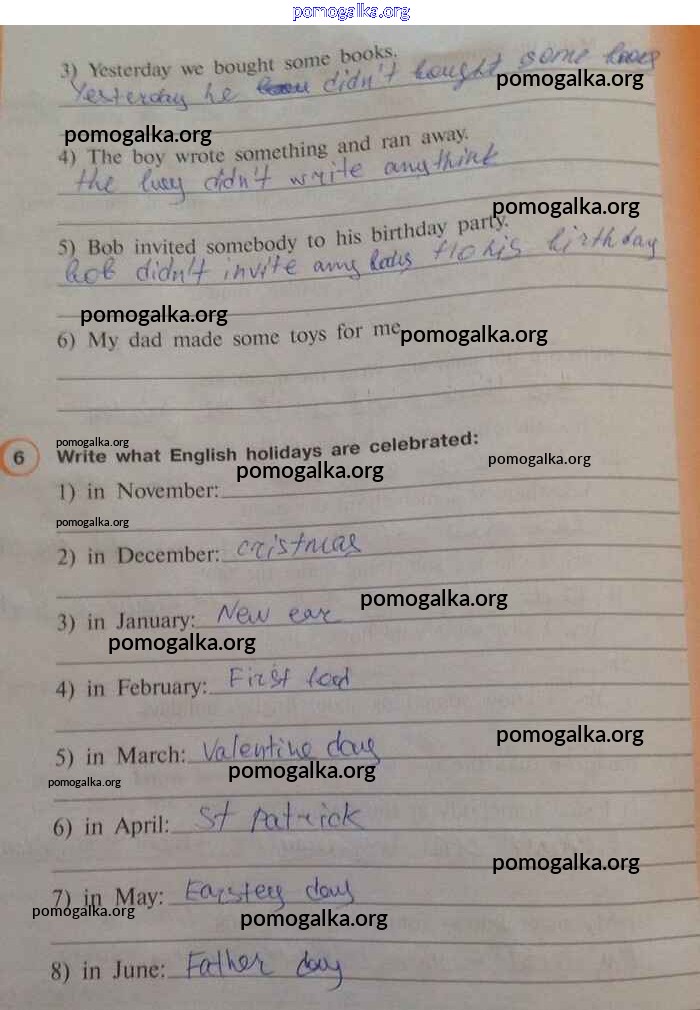 pomogalka.org
3) Yesterday we bought some books.
Yesterday he didn't bought some books
pomogalka.org
pomogalka.org
4) The boy wrote something and ran away.
the didn't write anythink
pomogalka.org
5) Bob invited somebody to his birthday party.
bob didn't invite his birthday
pomogalka.org
6) My dad made some toys for me
pomogalka.org
pomogalka.org
6 Write what English holidays are celebrated:
pomogalka.org
pomogalka.org
1) in November:
pomogalka.org
2) in December: cristmas
pomogalka.org
3) in January: New ear
pomogalka.org
4) in February: First
pomogalka.org
5) in March: Valentine day
pomogalka.org
pomogalka.org
6) in April: St Patrick
pomogalka.org
7) in May: day
pomogalka.org
pomogalka.org
8) in June: Father day